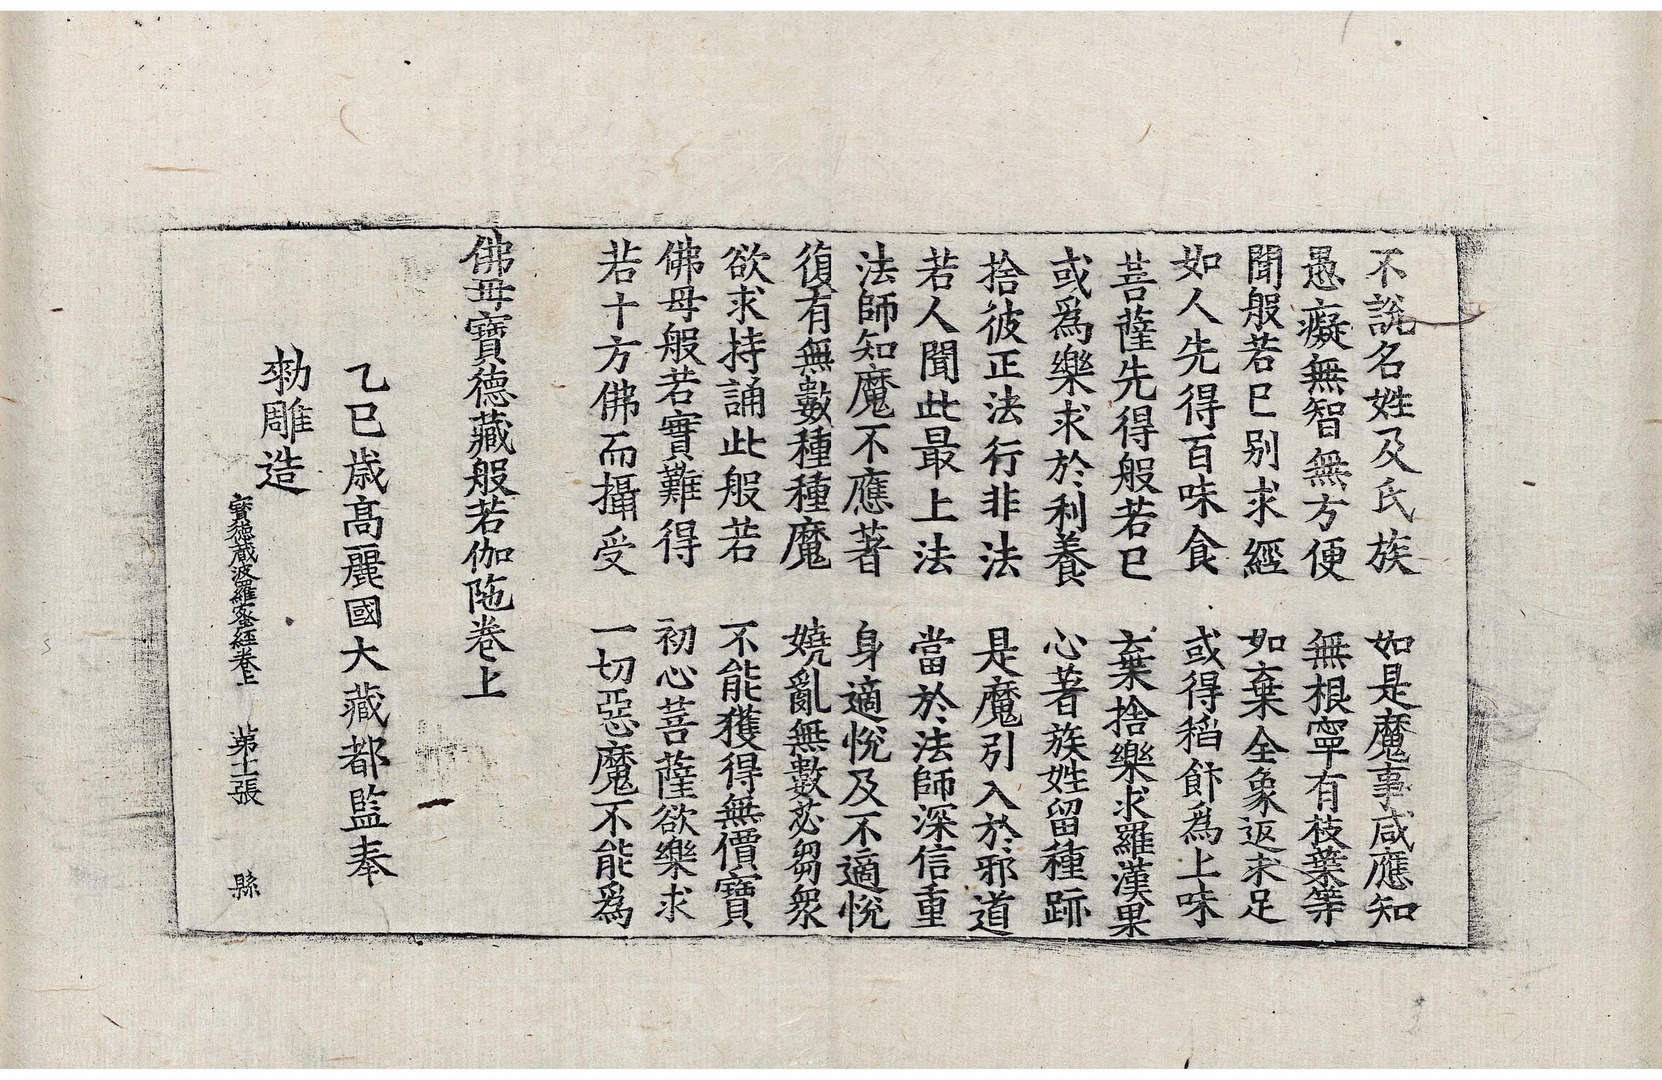 不說名姓及氏族　如是魔事咸應知
愚癡無智無方便　無根寧有枝葉等
聞般若已別求經　如棄全象返求足
如人先得百味食　或得稻飰爲上味
菩薩先得般若已　棄捨樂求羅漢果
或爲樂求於利養　心著族姓留種跡
捨彼正法行非法　是魔引入於邪道
若人聞此最上法　當於法師深信重
法師知魔不應著　身適悅及不適悅
復有無數種種魔　嬈亂無數苾芻衆
欲求持誦此般若　不能獲得無價寶
佛母般若實難得　初心菩薩欲樂求
若十方佛而攝受　一切惡魔不能爲
佛母寶德藏般若伽陁卷上
乙巳歲高麗國大藏都監奉
勑雕造
寶德藏波羅蜜經卷上　第十張　縣